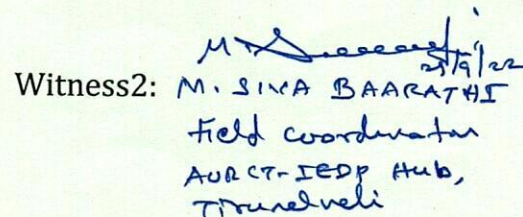 29/9/22
Witness2: M. SIVA BAARATHI
Field coordinator
AURCT-IEDP Hub,
Tirunelveli